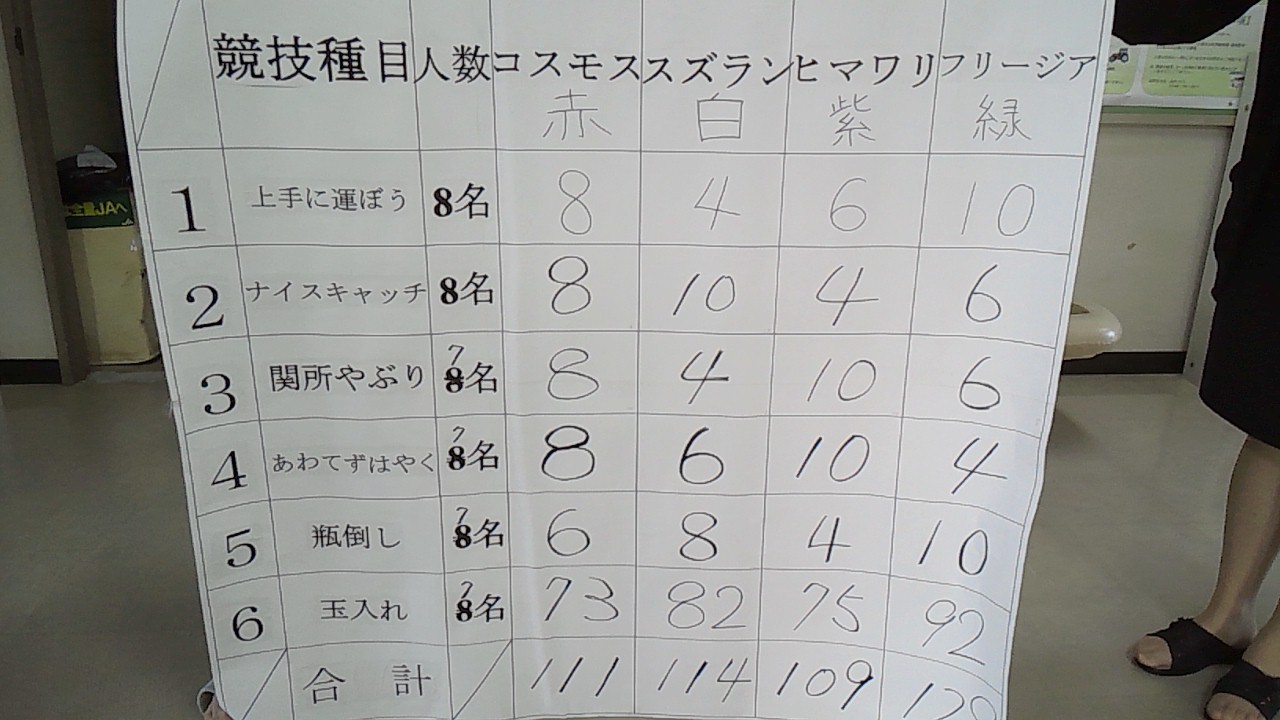 競技種目 人数 コスモス スズラン ヒマワリ フリージア
赤 白 紫 緑
1 上手に運ぼう 8名 8 4 6 10
2 ナイスキャッチ 8名 8 10 4 6
7
3 関所やぶり 8名 8 4 10 6
7
4 あわてずはやく 8名 8 6 10 4
7
5 瓶倒し 8名 6 8 4 10
7
6 玉入れ 8名 73 82 75 92
合計 111 114 109
全量JAへ